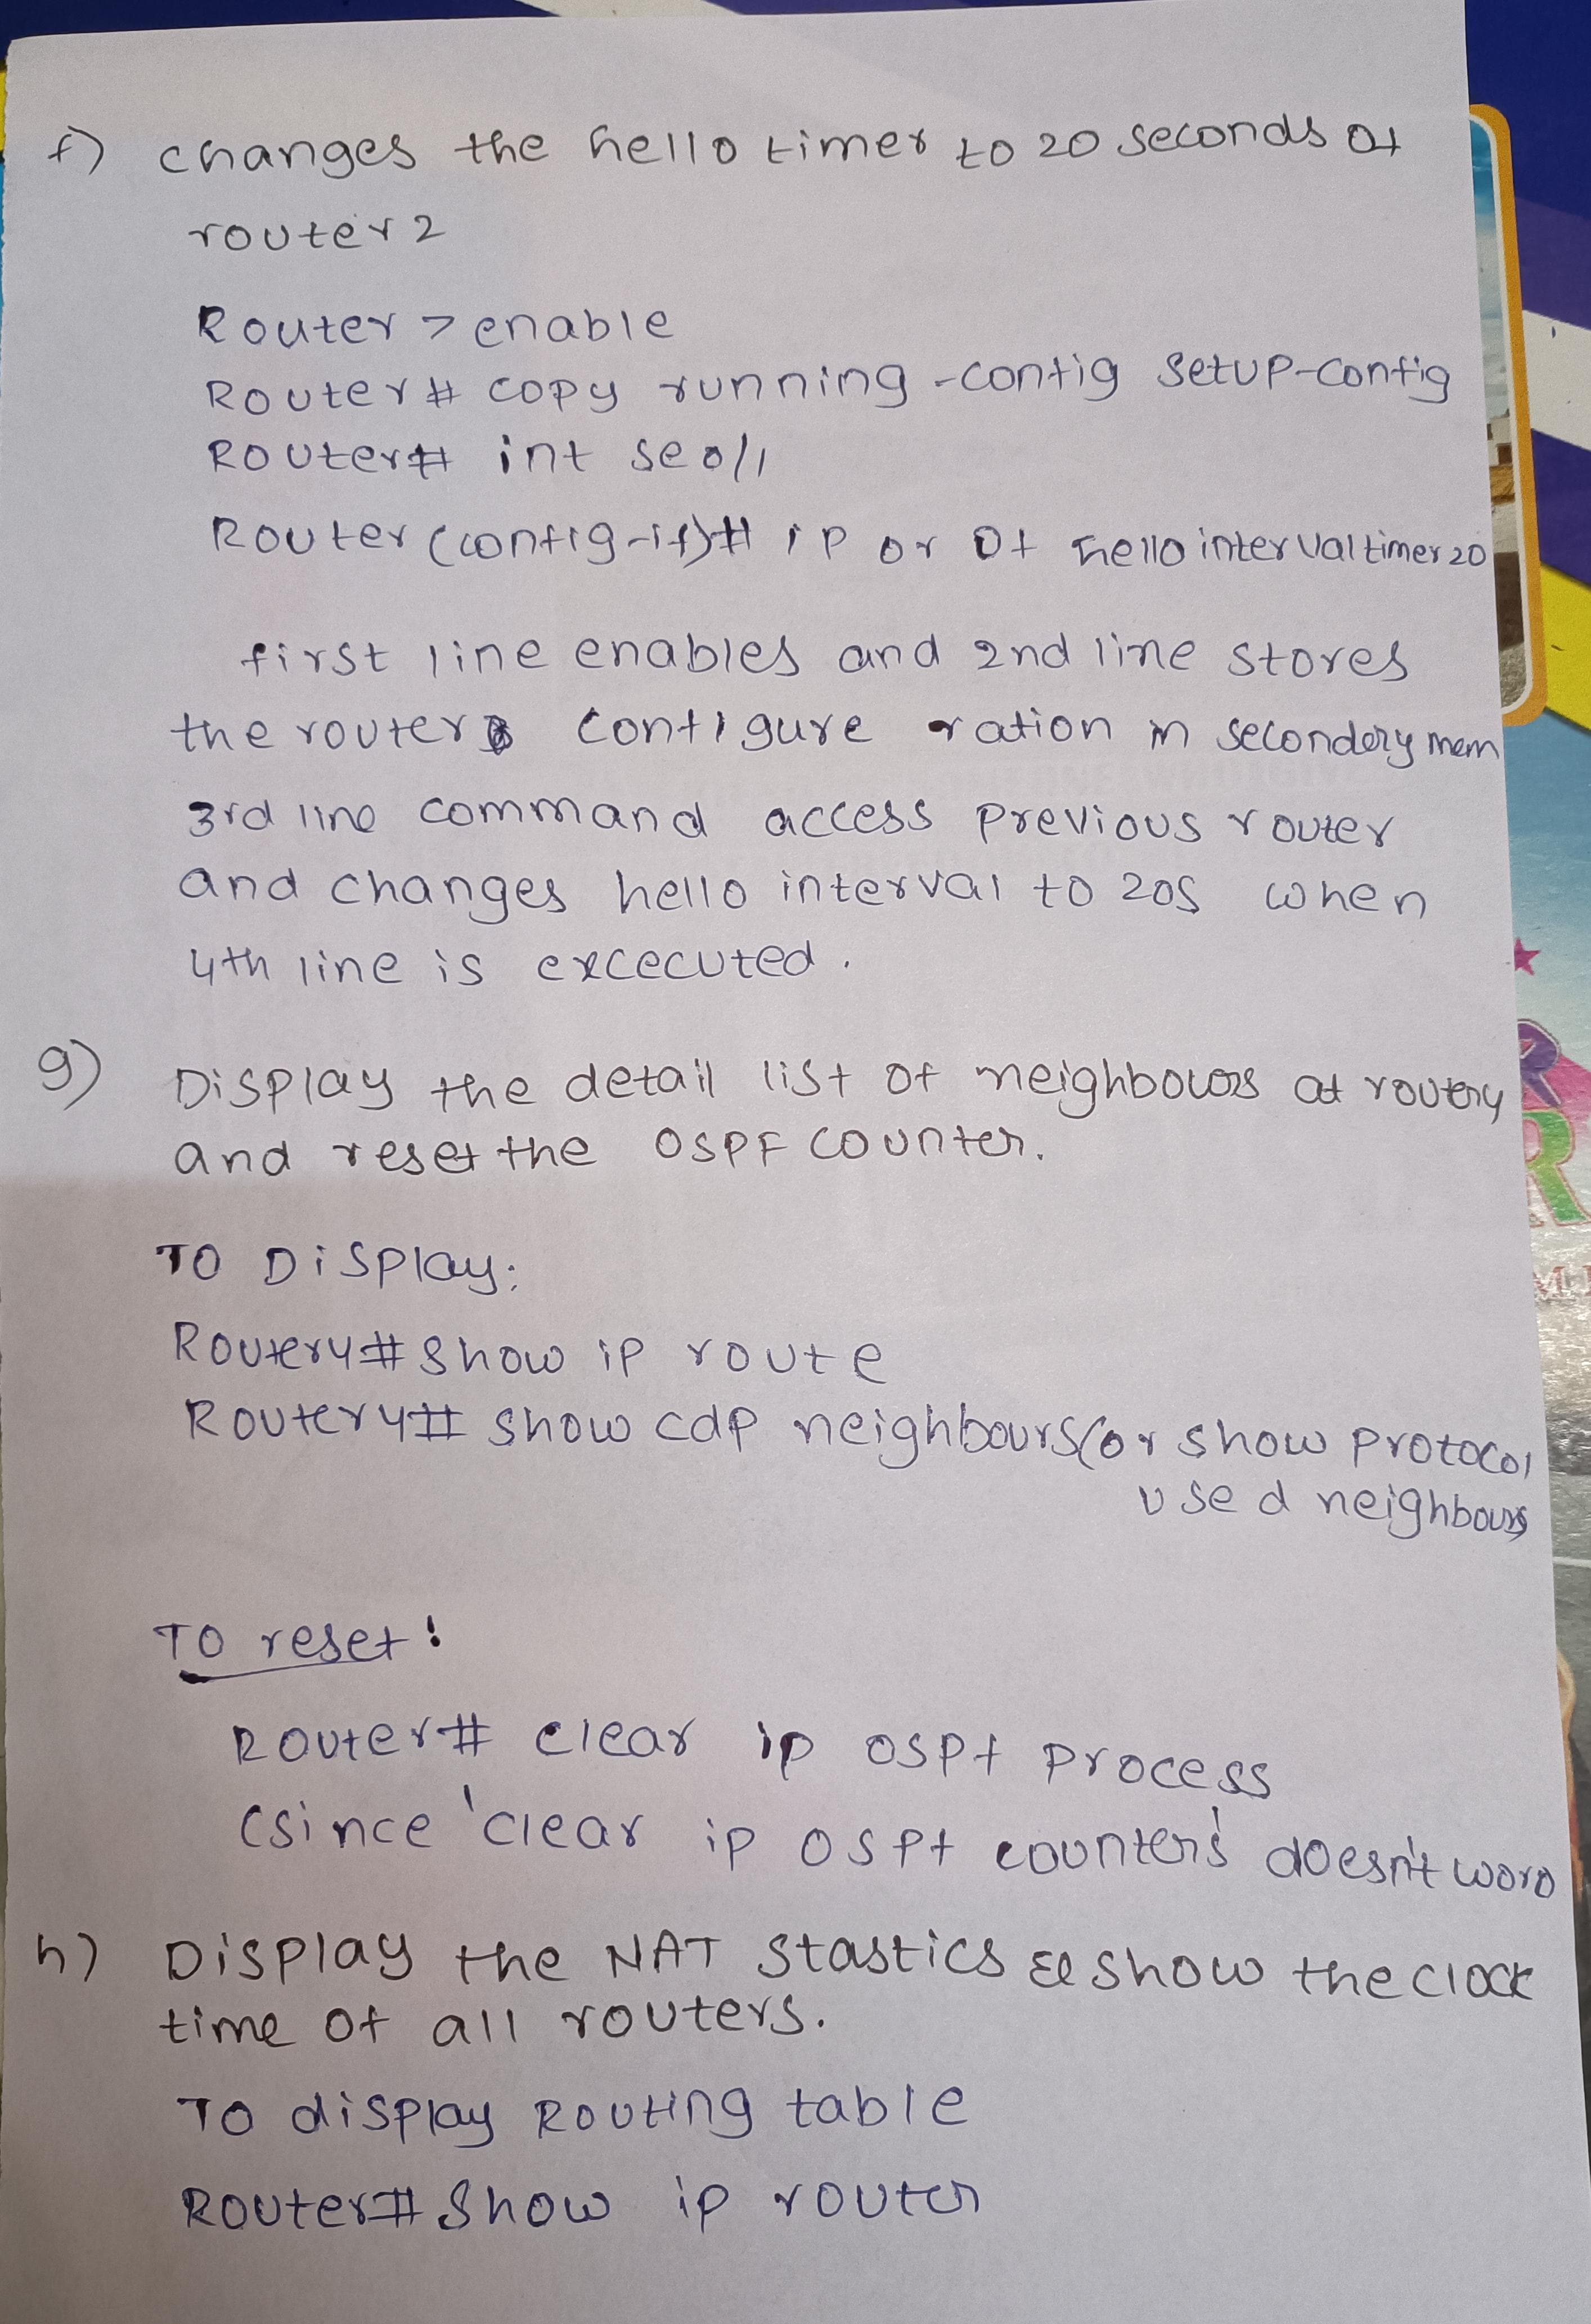 f) changes the hello timer to 20 seconds at
router 2
Router > enable
Router # copy running -config setup-config
Router# int se0/1
Router (config-if)# ip or Of hello interval timer 20
first line enables and 2nd line stores
the router configure ration in secondery mem
3rd line command access previous router
and changes hello interval to 20s when
4th line is excecuted.
g) Display the detail list of neighbours at router4
and reset the OSPF counter.
TO Display:
Router4# show ip route
Router4# show cdp neighbours (or show protocol
used neighbours
TO reset:
Router# clear ip ospf process
(since 'clear ip ospf counters' doesn't
h) Display the NAT Stastics & show the clock
time of all routers.
To display Routing table
Router# show ip router